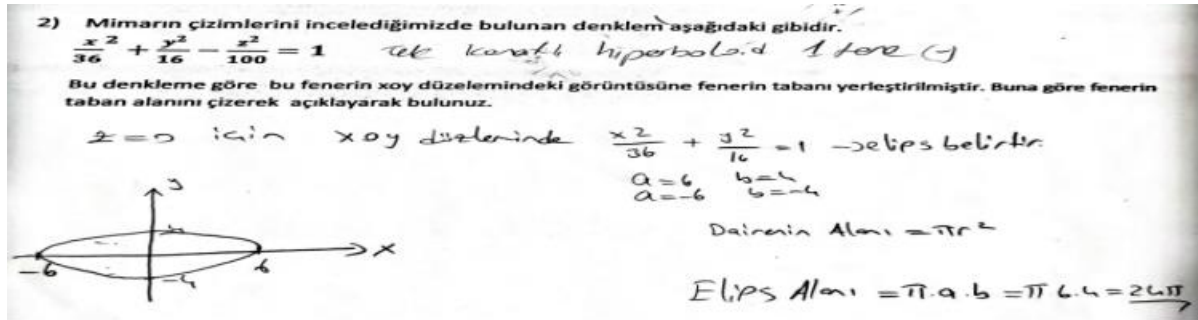 2) Mimarın çizimlerini incelediğimizde bulunan denklem aşağıdaki gibidir.
x²/36 + y²/16 − z²/100 = 1 Tek kanatlı hiperboloid 1 tane (-)
Bu denkleme göre bu fenerin xoy düzlemindeki görüntüsüne fenerin tabanı yerleştirilmiştir. Buna göre fenerin
taban alanını çizerek açıklayarak bulunuz.
z=0 için xoy düzleminde x²/36 + y²/16 = 1 → elips belirtir.
a=6 b=4
a=-6 b=-4
Dairenin Alanı = πr²
y
4
x
-6
6
-4
Elips Alanı = π.a.b = π 6.4 = 24π